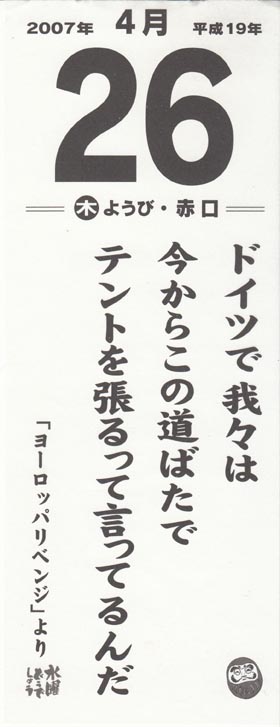 2007年 4月 平成19年
26
木ようび・赤口
ドイツで我々は
今からこの道ばたで
テントを張るって言ってるんだ
「ヨーロッパリベンジ」より
水曜
どうで
しょう